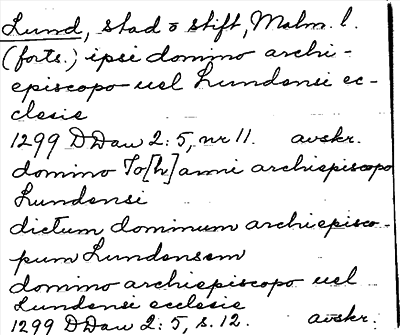 Lund, stad o stift, Malm. l.
(forts.) ipsi domino archi-
episcopo uel Lundensi ec-
clesie
1299 DDan 2:5, nr 11. avskr.
domino Jo[h]anni archiepiscopo
Lundensi
dictum dominum archiepisco-
pum Lundensem
domino archiepiscopo uel
Lundensi ecclesie
1299 DDan 2:5, s. 12. avskr.